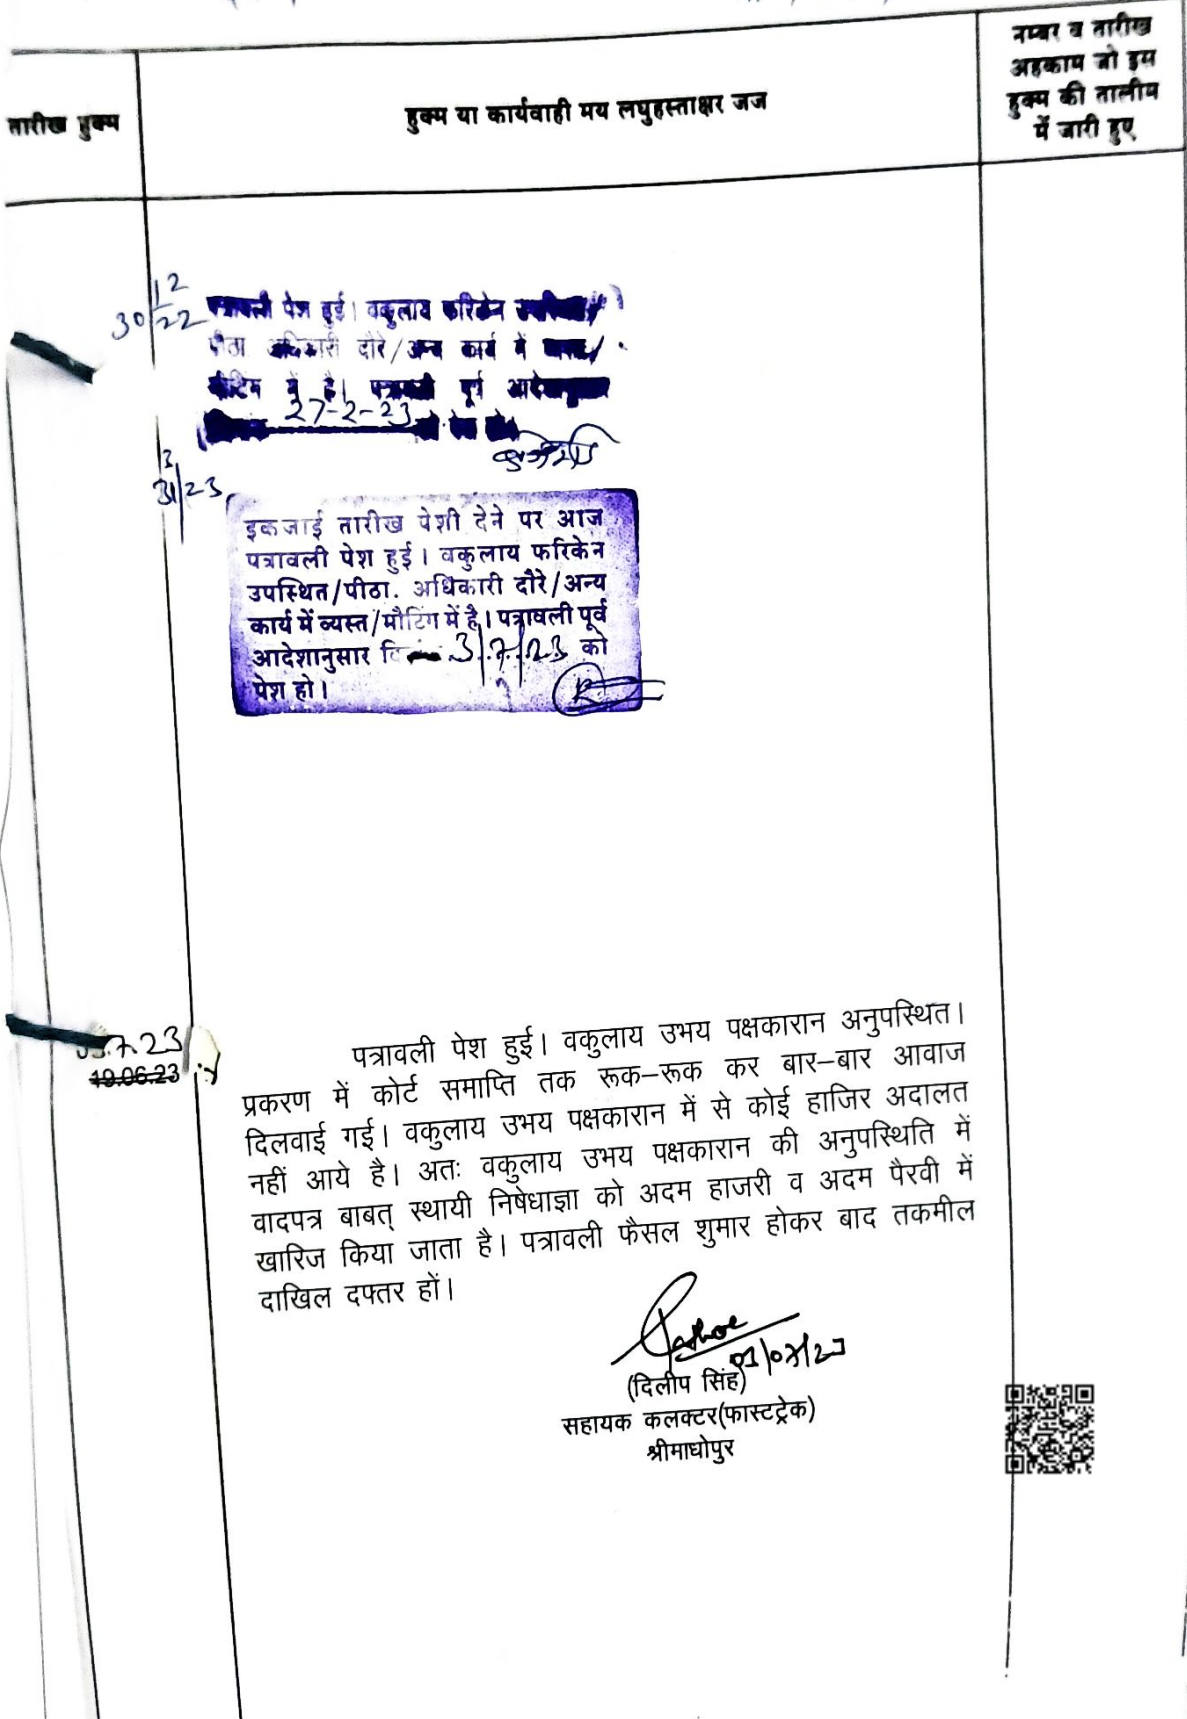 तारीख हुक्म
हुक्म या कार्यवाही मय लघुहस्ताक्षर जज
नम्बर व तारीख
अहकाम जो इस
हुक्म की तालीम
में जारी हुए
30/12/22
पत्रावली पेश हुई। वकुलाय फरिकेन
पीठा अधिकारी दौरे/अन्य कार्य में
मीटिंग में है। पत्रावली पूर्व आदेशानुसार
27-2-23 को पेश हो।
31/3/23
इकजाई तारीख पेशी देने पर आज
पत्रावली पेश हुई। वकुलाय फरिकेन
उपस्थित/पीठा. अधिकारी दौरे/अन्य
कार्य में व्यस्त/मीटिंग में है। पत्रावली पूर्व
आदेशानुसार दि 3/7/23 को
पेश हो।
03.7.23
19.06.23
पत्रावली पेश हुई। वकुलाय उभय पक्षकारान अनुपस्थित।
प्रकरण में कोर्ट समाप्ति तक रूक–रूक कर बार–बार आवाज
दिलवाई गई। वकुलाय उभय पक्षकारान में से कोई हाजिर अदालत
नहीं आये है। अतः वकुलाय उभय पक्षकारान की अनुपस्थिति में
वादपत्र बाबत् स्थायी निषेधाज्ञा को अदम हाजरी व अदम पैरवी में
खारिज किया जाता है। पत्रावली फैसल शुमार होकर बाद तकमील
दाखिल दफ्तर हों।
03/07/23
(दिलीप सिंह)
सहायक कलक्टर(फास्टट्रेक)
श्रीमाधोपुर